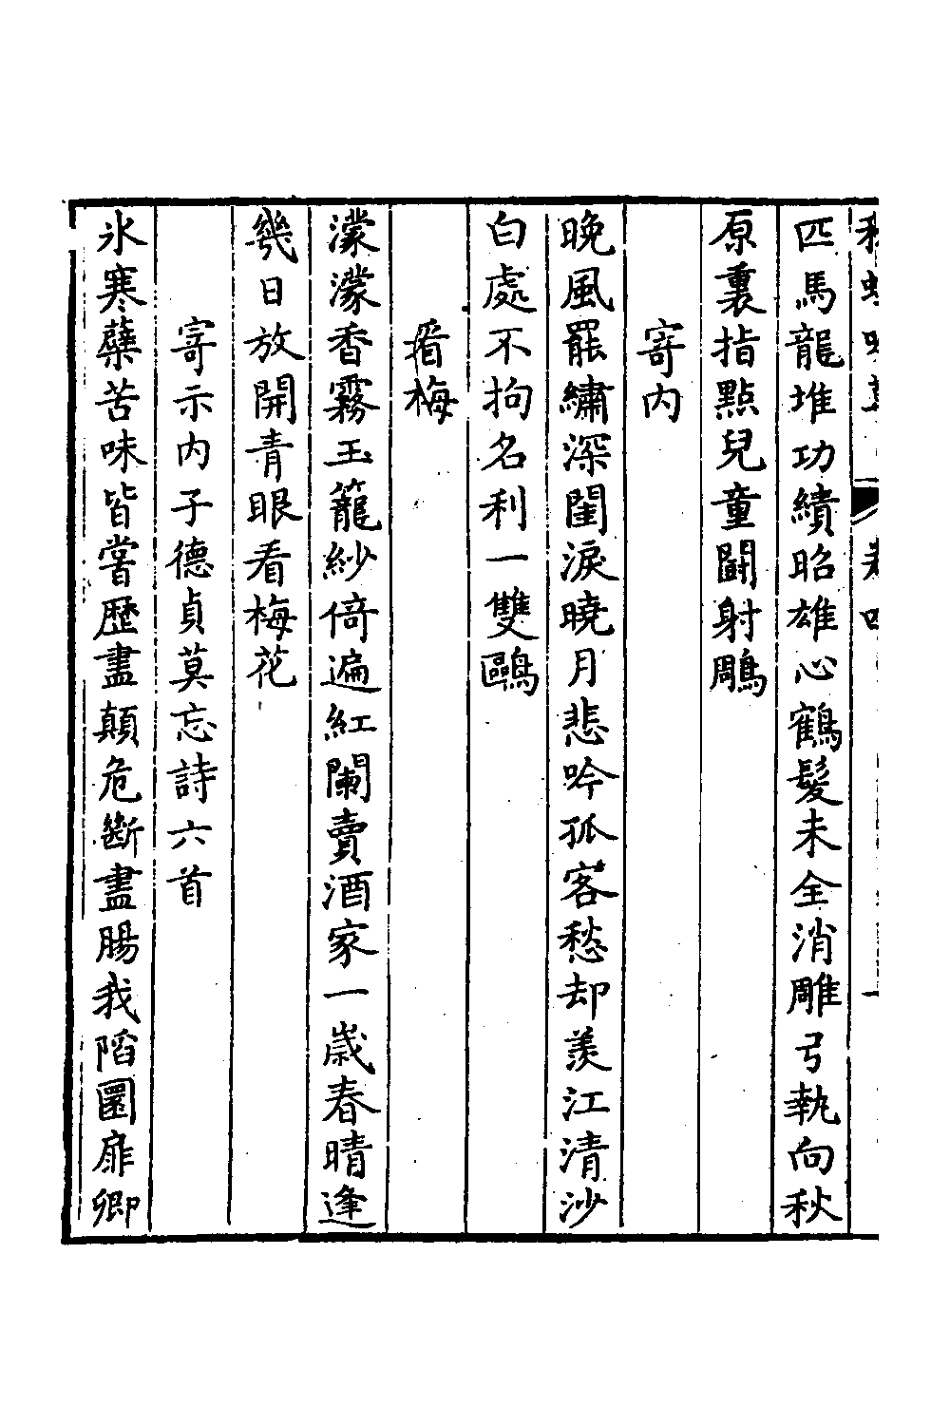 匹馬龍堆功績昭雄心鶴髮未全消雕弓執向秋
原裏指點兒童鬭射鵰
寄内
晚風罷繡深閨淚曉月悲吟孤客愁却羨江清沙
白處不拘名利一雙鷗
看梅
濛濛香霧玉籠紗倚遍紅闌賣酒家一歲春晴逢
幾日放開青眼看梅花
寄示内子德貞莫忘詩六首
氷寒蘗苦味皆嘗歷盡顛危斷盡腸我陷圜扉卿